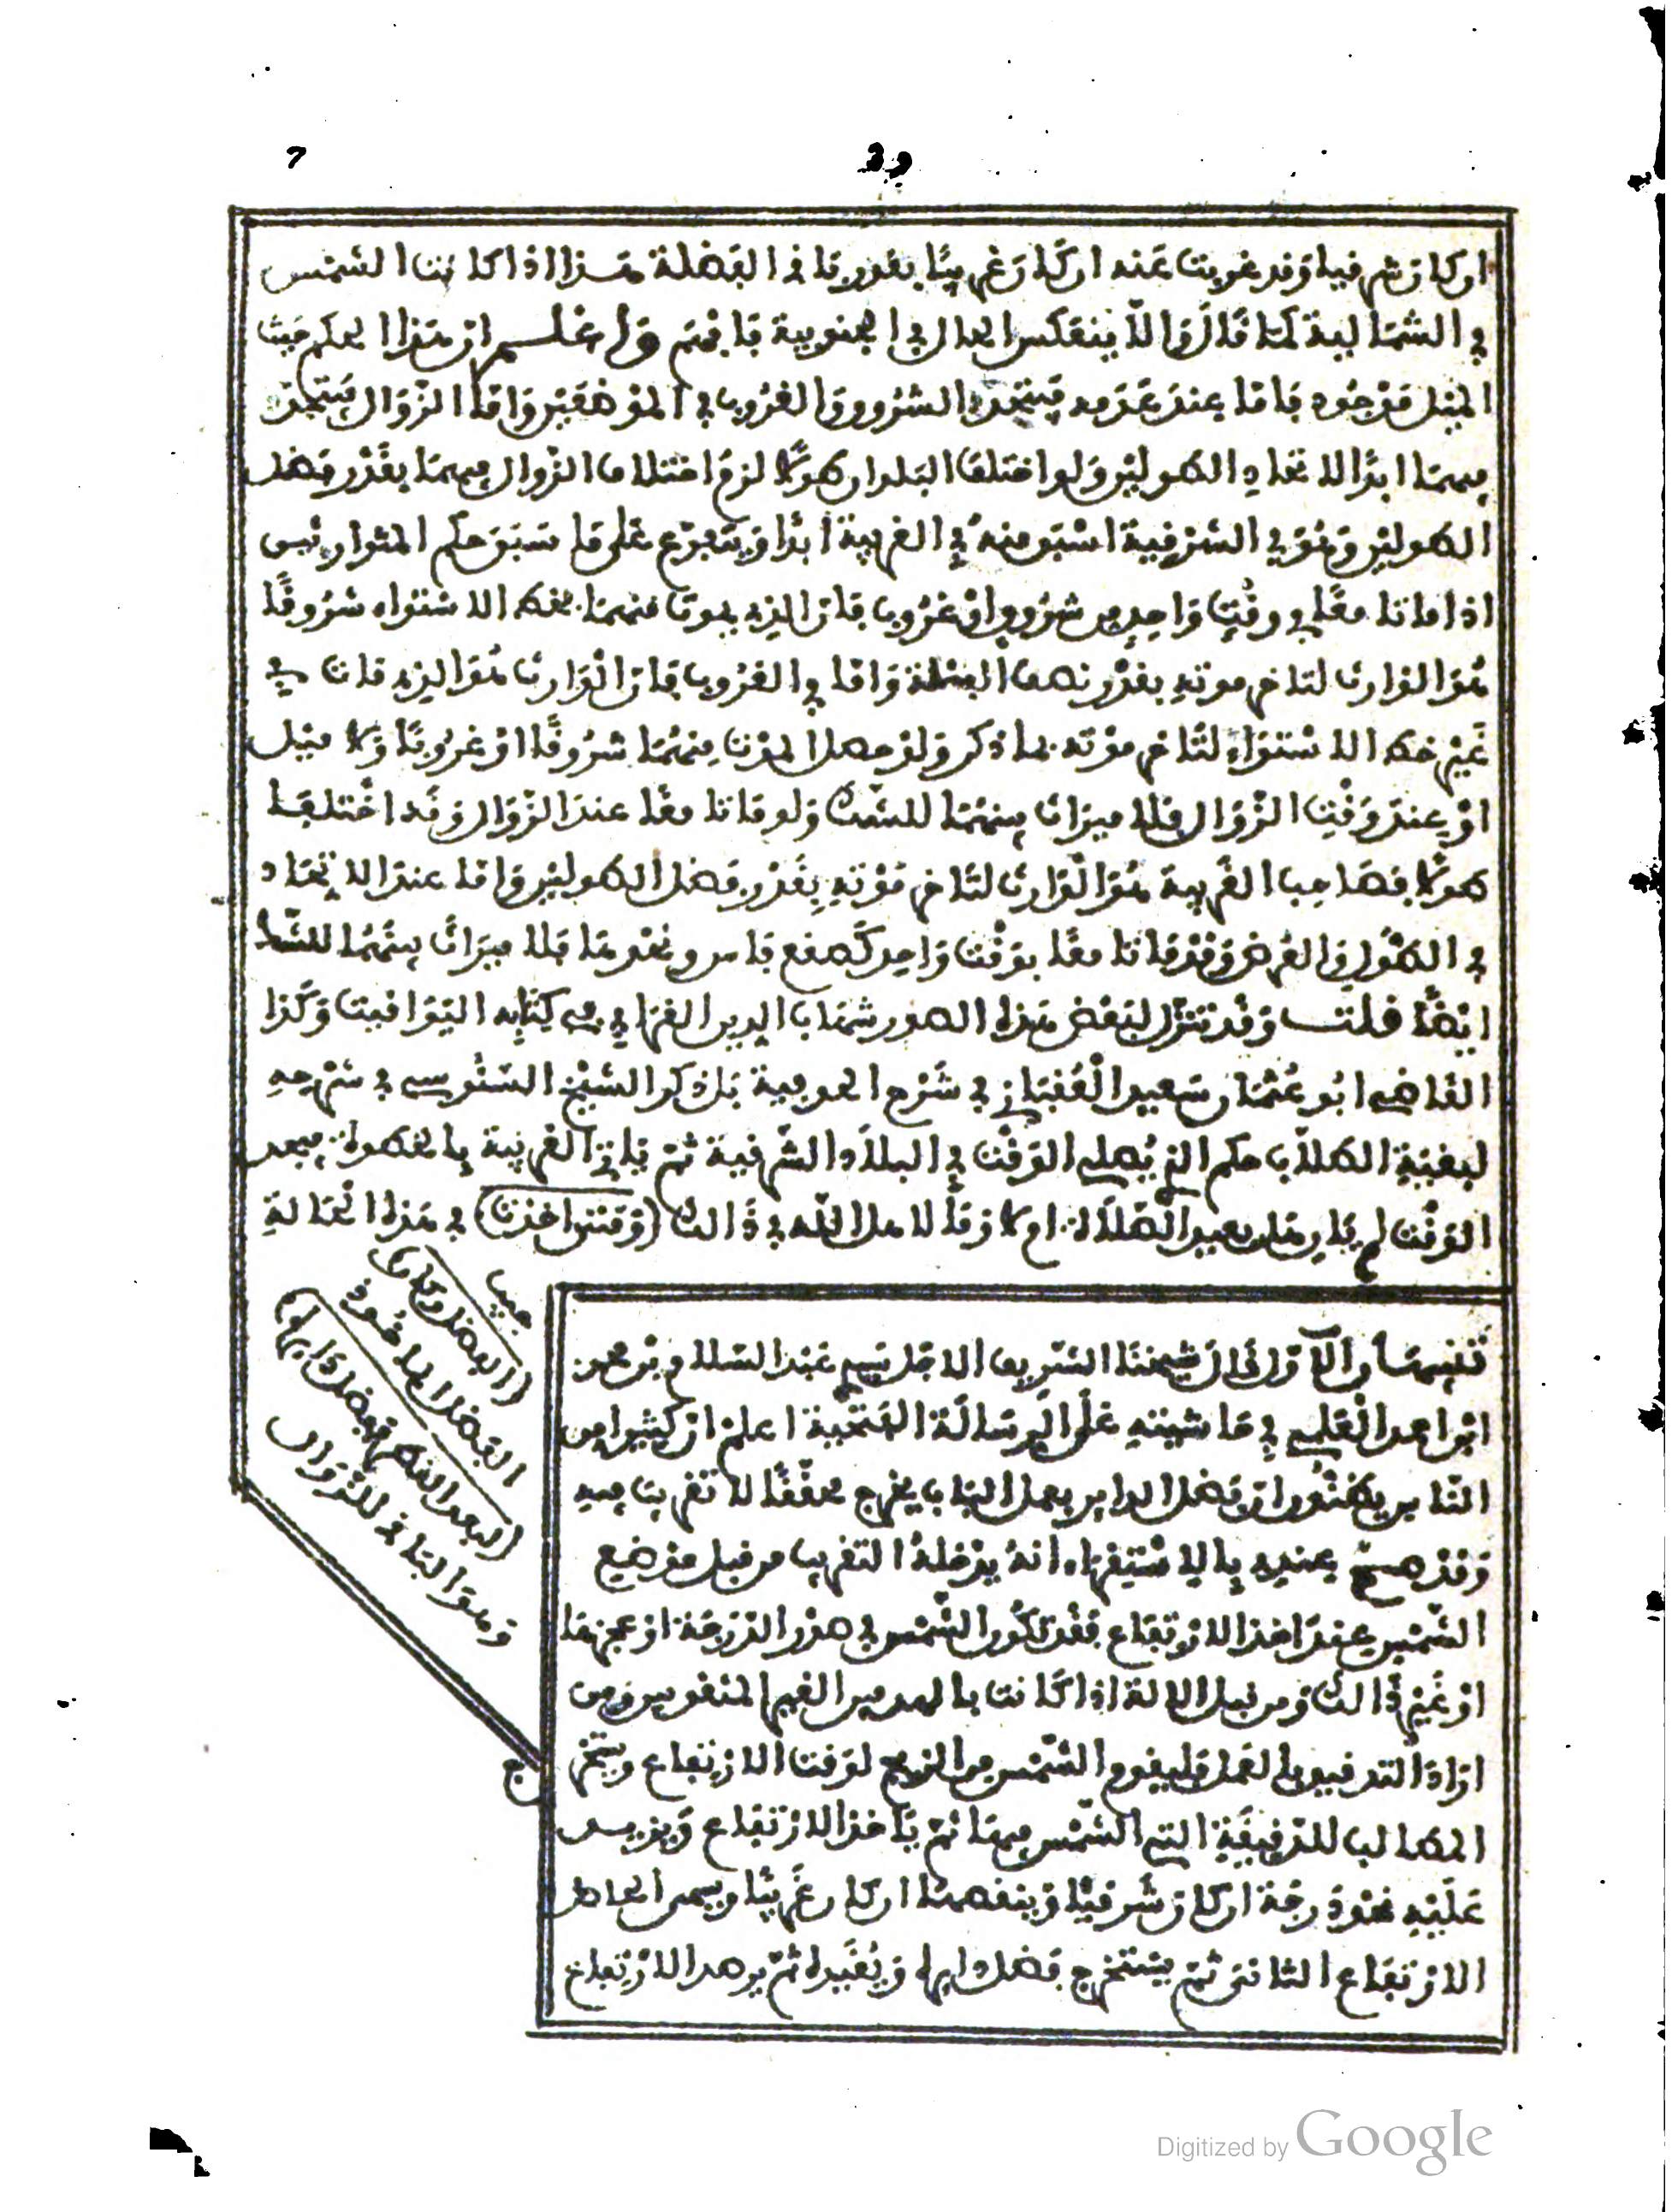 7 39
ان كان شرقيا وقد غربت عنه ان كان غربيا بقدر باقي الفضلة هذا اذا كانت الشمس
في الشمالية كما قال والا ينعكس الحال في الجنوبية فافهم واعلم ان هذا الحكم حيث
الميل موجود فاما عند عدمه فيتحد الشروق والغروب في الموضعين واما الزوال فيتحد
فيهما ابدا لاتحاد الطولين ولو اختلف البلدان طولا لزم اختلاف الزوال فيهما بقدر فضل
الطولين وهو في الشرقية اسبق منه في الغربية ابدا ويتفرع على ما سبق حكم المتوارثين
اذا ماتا معا في وقت واحد من شروق او غروب فان الذي يموت منهما بخط الاستواء شروقا
هو الوارث لتاخر موته بقدر نصف الفضلة واما في الغروب فان الوارث هو الذي مات في
غير خط الاستواء لتاخر موته بما ذكر ولو حصل الموت منهما شروقا او غروبا ولا ميل
او عند وقت الزوال فلا ميراث بينهما للشك ولو ماتا معا عند الزوال وقد اختلفا
طولا فصاحب الغربية هو الوارث لتاخر موته بقدر فضل الطولين واما عند الاتحاد
في الطول والعرض وقد ماتا معا بوقت واحد كصقع فاس ونحوها فلا ميراث بينهما للشك
ايضا قلت وقد تنزل لبعض هذه الصور شهاب الدين القرافي في كتابه اليواقيت وكذا
القاضي ابو عثمان سعيد العقباني في شرح الحوفية بل ذكر الشيخ السنوسي في شرحه
لبغية الطلاب حكم الذي يصلي الوقت في البلاد الشرقية ثم ياتي الغربية بالخطوة فيجد
الوقت لم يات هل يعيد الصلاة ام لا وقالا هلال الله في ذالك (ومتى اخذت) في هذه الحالة
جيب
(الفضل وكان)
الفضل الماخوذ
(لبعد الظهر فهو فضل داير)
وهو الباقي للزوال
تنبيهات الاول قال شيخنا الشريف الاجل سيدي عبد السلام بن محمد
ابن احمد العلمي في حاشيته على الرسالة الفتحية اعلم ان كثيرا من
الناس يظنون ان فضل الداير بعمل الباب يخرج محققا لا تقريب فيه
وقد صح عندي بالاستقراء انه يدخله التقريب من قبل موضع
الشمس عند اخذ الارتفاع فقد تكون الشمس في صدر الدرجة او عجزها
او غير ذالك ومن قبل الالة اذا كانت
اراد التدقيق في العمل فليقوم الشمس من الزيج لوقت الارتفاع ويستخرج
المطالب للدقيقة التي الشمس فيها ثم ياخذ الارتفاع ويزيد
عليه نحو درجة ان كان شرقيا وينقصها ان كان غربيا ويسمى الحاصل
الارتفاع الثاني ثم يستخرج فضل دايره ويقيده ثم يرصد الارتفاع